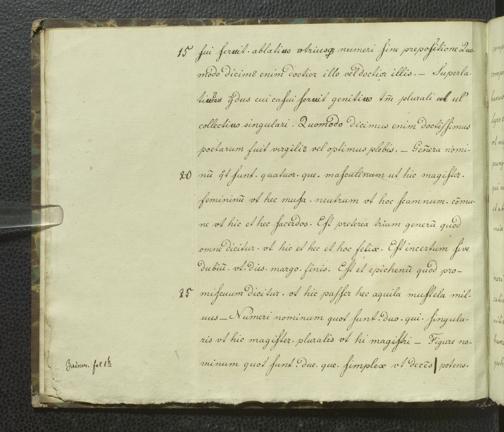 15 sui seruit. ablatiuo utriusq numeri sine prepositione Quo
modo dicimus enim doctior illo vel doctior illis. — Superla
tiuus gdus cui casui seruit genitiuo tm plurali vel
collectiuo singulari. Quomodo dicimus enim doctissimus
poetarum fuit virgilius vel optimus plebis. — Genera nomi-
20 nū qt sunt. quatuor. que. masculinum ut hic magister.
femininū vt hec musa. neutrum vt hoc scamnum. cōmu-
ne vt hic et hec sacerdos. Est preterea trium generū quod
omne dicitur. vt hic et hec et hoc felix. Est incertum siue
dubiū. vt dies. margo. finis. Est et epichenū quod pro-
25 miscuum dicitur. vt hic passer hec aquila mustela mil-
uus — Numeri nominum quot sunt? duo. qui. singula-
ris vt hic magister. pluralis vt hi magistri — Figure no-
minum quot sunt? due. que. simplex vt decēs potens.